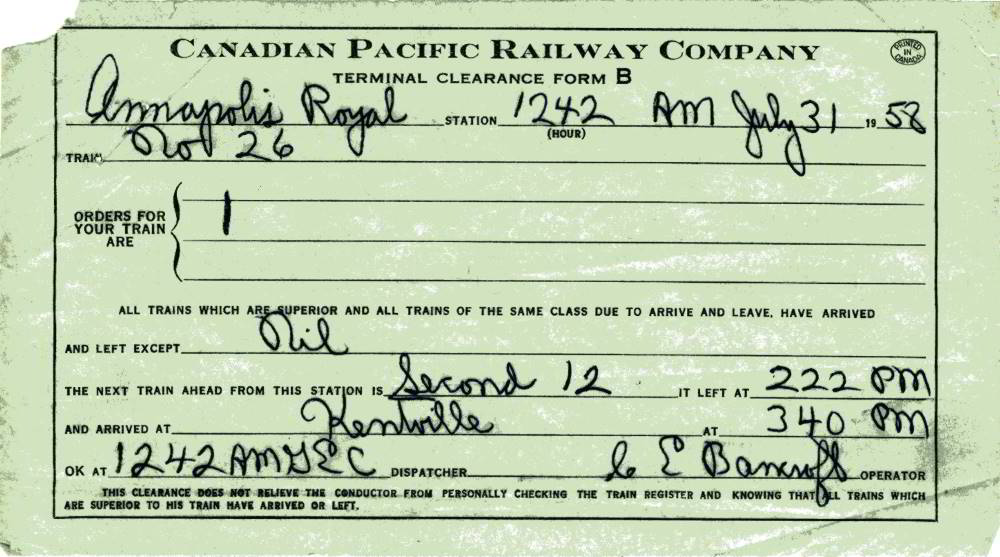 CANADIAN PACIFIC RAILWAY COMPANY
PRINTED IN CANADA
TERMINAL CLEARANCE FORM B
Annapolis Royal STATION 1242 AM July 31 19 58
(HOUR)
TRAIN No 26
ORDERS FOR YOUR TRAIN ARE 1
ALL TRAINS WHICH ARE SUPERIOR AND ALL TRAINS OF THE SAME CLASS DUE TO ARRIVE AND LEAVE, HAVE ARRIVED
AND LEFT EXCEPT Nil
THE NEXT TRAIN AHEAD FROM THIS STATION IS Second 12 IT LEFT AT 222 PM
AND ARRIVED AT Kentville AT 340 PM
OK AT 1242 AM GEC DISPATCHER C E Bancroft OPERATOR
THIS CLEARANCE DOES NOT RELIEVE THE CONDUCTOR FROM PERSONALLY CHECKING THE TRAIN REGISTER AND KNOWING THAT ALL TRAINS WHICH
ARE SUPERIOR TO HIS TRAIN HAVE ARRIVED OR LEFT.